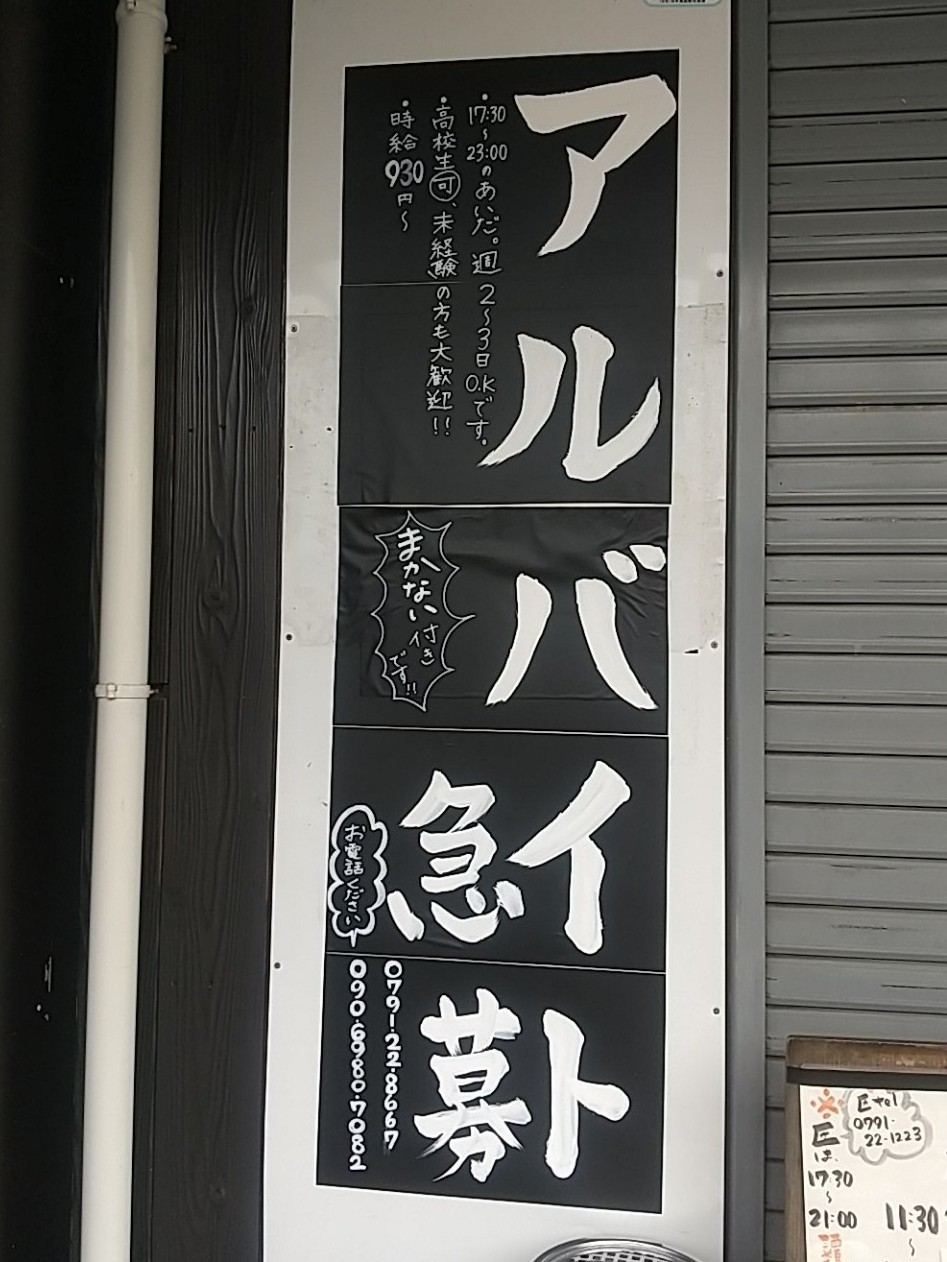 アルバイト
急募
・17:30～23:00のあいだ。週2～3日O.Kです。
・高校生可、未経験の方も大歓迎!!
・時給930円～
まかない付きです!!
お電話ください
0791-22-8667
090-6980-7082
匠tel
0791-
22-1223
匠は、
17:30
～
21:00
11:30
～